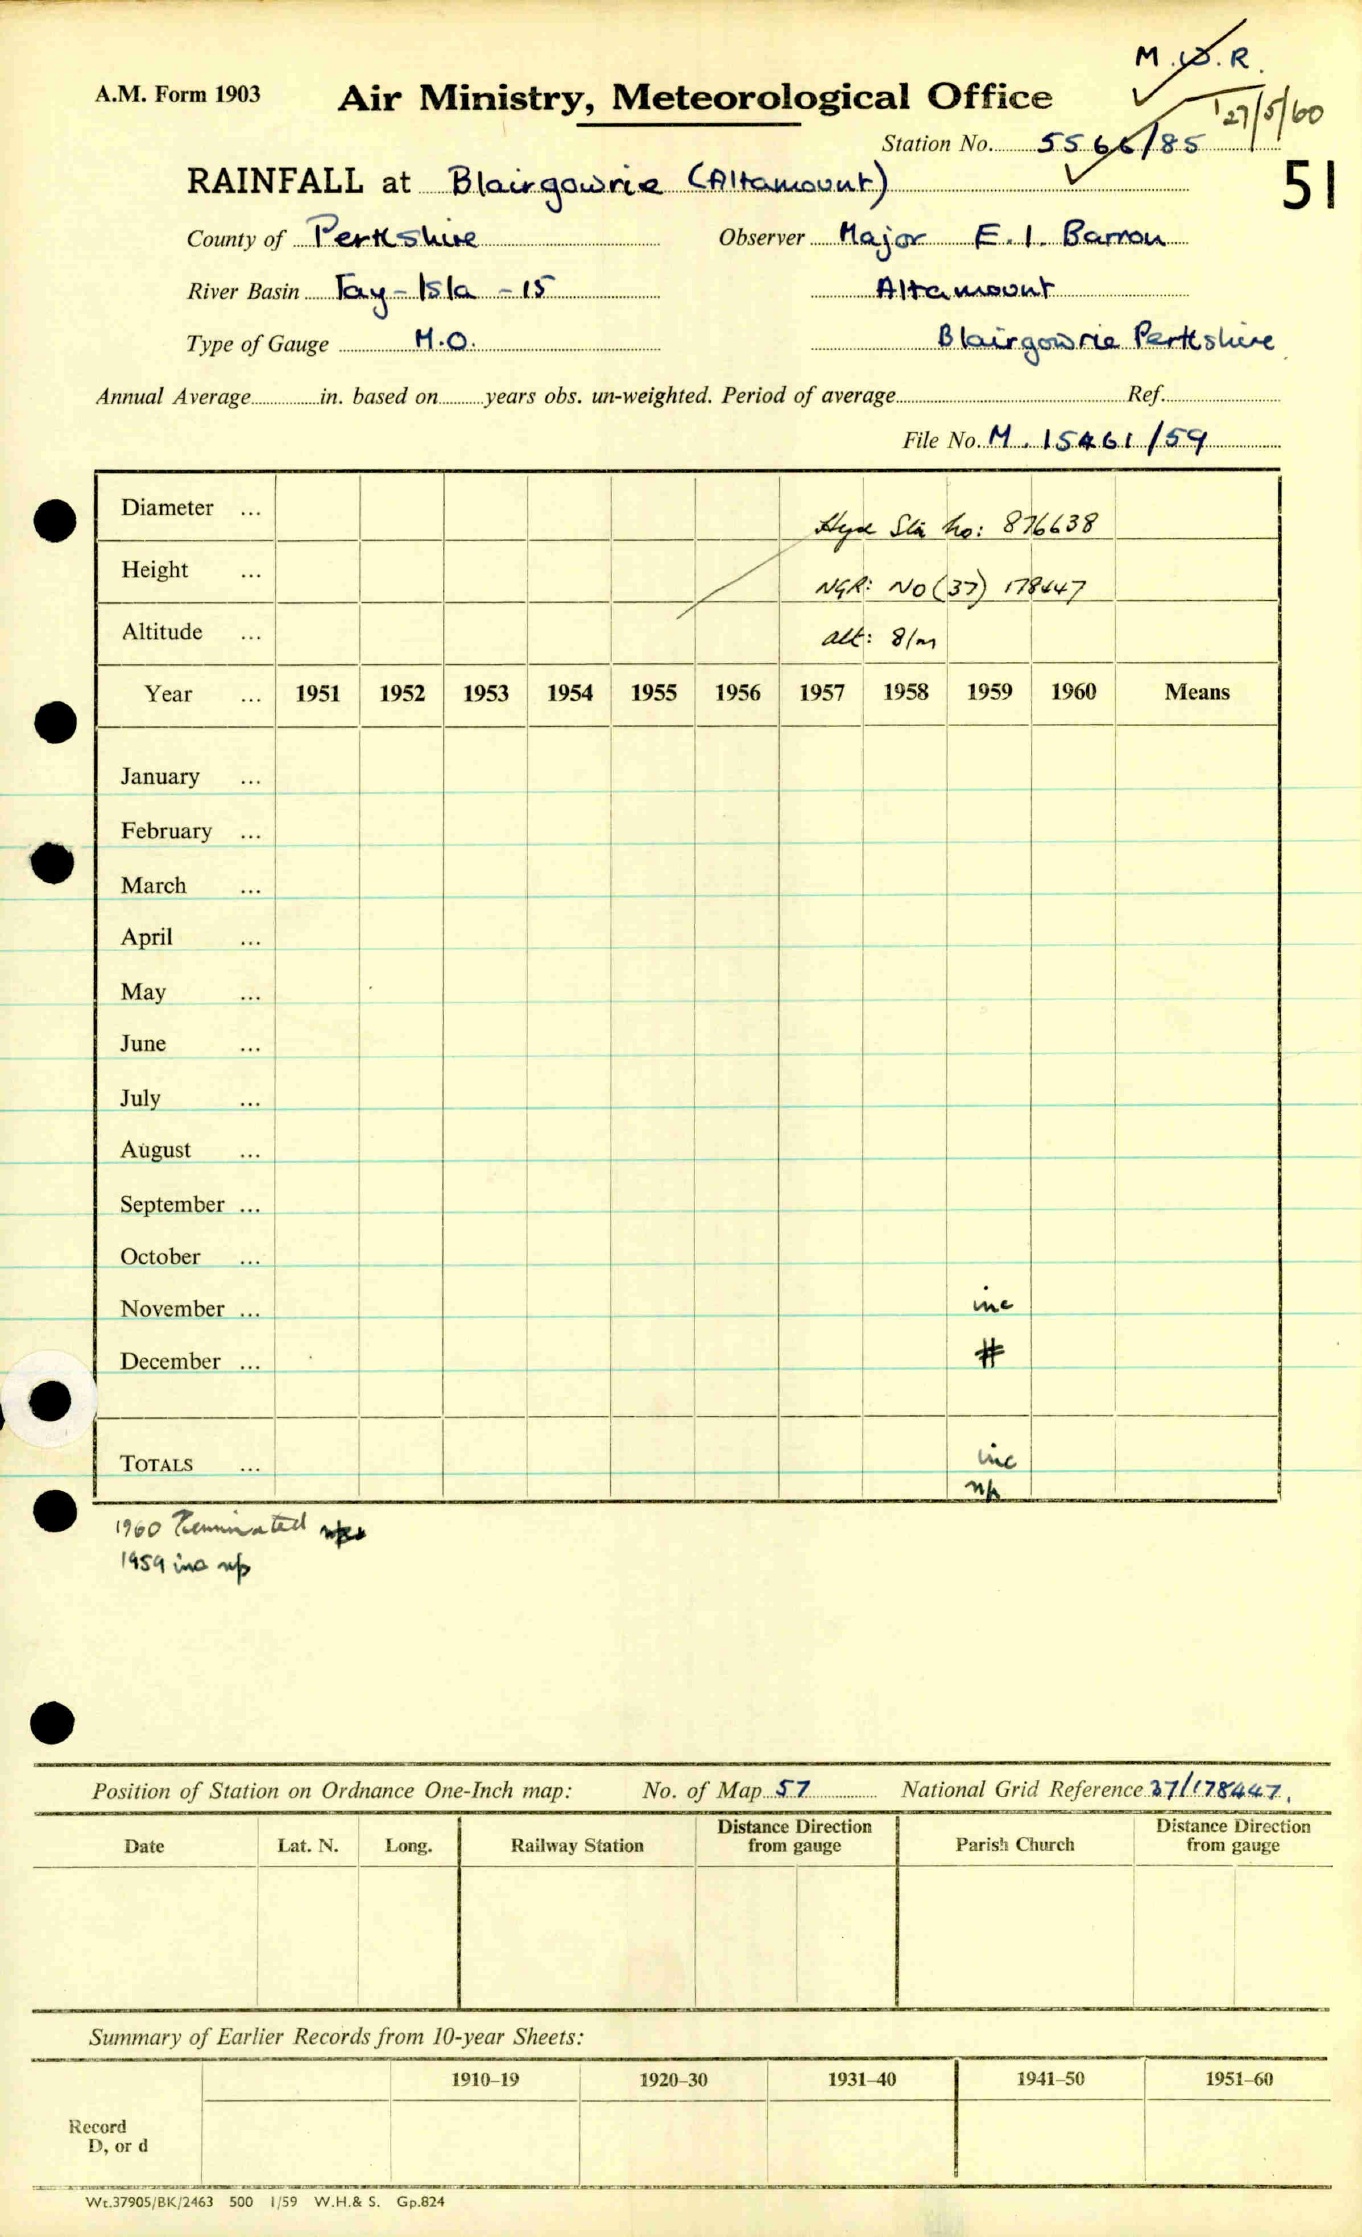 M.W.R.
A.M. Form 1903
Air Ministry, Meteorological Office
27/5/60
Station No. 5566/85
51
RAINFALL at Blairgowrie (Altamount)
County of Perthshire Observer Major E.I. Barron
River Basin Tay-Isla -15 Altamount
Type of Gauge M.O. Blairgowrie Perthshire
Annual Average in. based on years obs. un-weighted. Period of average Ref.
File No. M. 15461/59
Diameter ... Stn No: 876638
Height ... NGR: NO (37) 178447
Altitude ... alt: 81m
Year ... 1951 1952 1953 1954 1955 1956 1957 1958 1959 1960 Means
January ...
February ...
March ...
April ...
May ...
June ...
July ...
August ...
September ...
October ...
November ... inc
December ... #
TOTALS ... inc
np
1960 Terminated
1959 inc np
Position of Station on Ordnance One-Inch map: No. of Map 57 National Grid Reference 37/178447.
Date Lat. N. Long. Railway Station Distance Direction from gauge Parish Church Distance Direction from gauge
Summary of Earlier Records from 10-year Sheets:
1910–19 1920–30 1931–40 1941–50 1951–60
Record
D, or d
Wt.37905/BK/2463 500 1/59 W.H.& S. Gp.824